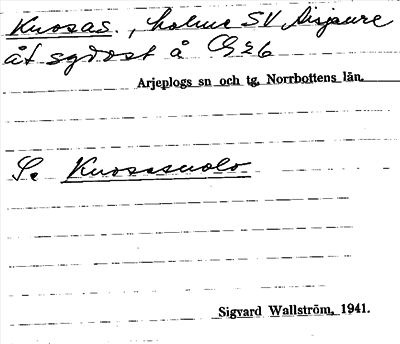 Kuosas., holme SV Aisjaure
åt sydost å G26
Arjeplogs sn och tg, Norrbottens län.
Se Kuosasuolo
Sigvard Wallström, 1941.